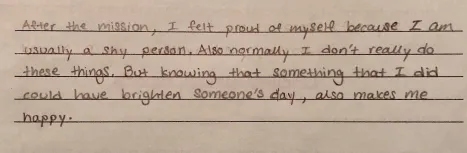 After the mission, I felt proud of myself because I am
usually a shy person. Also normally I don't really do
these things. But knowing that something that I did
could have brighten someone's day, also makes me
happy.